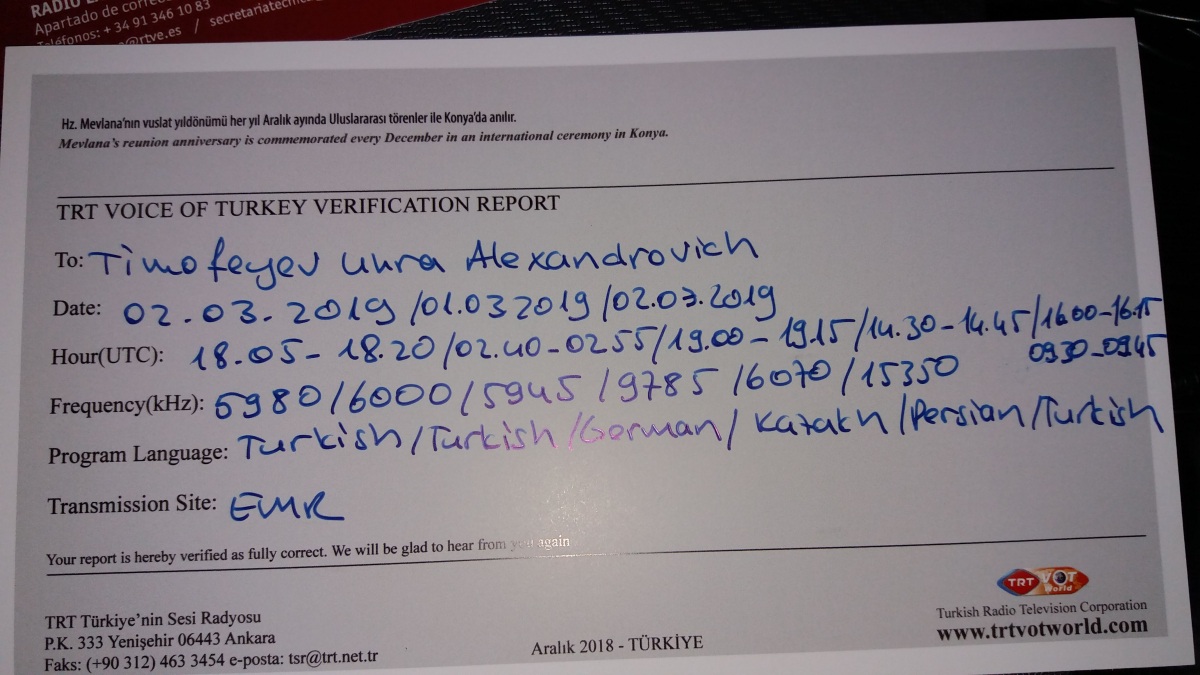 RADIO
Apartado de corre
Teléfonos: + 34 91 346 10 83 / secretariatecni
@rtve.es
Hz. Mevlana'nın vuslat yıldönümü her yıl Aralık ayında Uluslararası törenler ile Konya'da anılır.
Mevlana's reunion anniversary is commemorated every December in an international ceremony in Konya.
TRT VOICE OF TURKEY VERIFICATION REPORT
To: Timofeyev Unra Alexandrovich
Date: 02.03.2019 /01.03 2019 /02.03.2019
Hour(UTC): 18.05- 18.20 /02.40-0255/19.00 - 19.15 /14.30-14.45/1600-16.15
0930-0945
Frequency(kHz): 5980/6000/5945 /9785 /6070 /15350
Program Language: Turkish/Turkish/German/ Kazakh /Persian/Turkish
Transmission Site: EMR
Your report is hereby verified as fully correct. We will be glad to hear from you again
TRT Türkiye'nin Sesi Radyosu
P.K. 333 Yenişehir 06443 Ankara
Faks: (+90 312) 463 3454 e-posta: tsr@trt.net.tr
Aralık 2018 - TÜRKİYE
TRT VOT World
Turkish Radio Television Corporation
www.trtvotworld.com